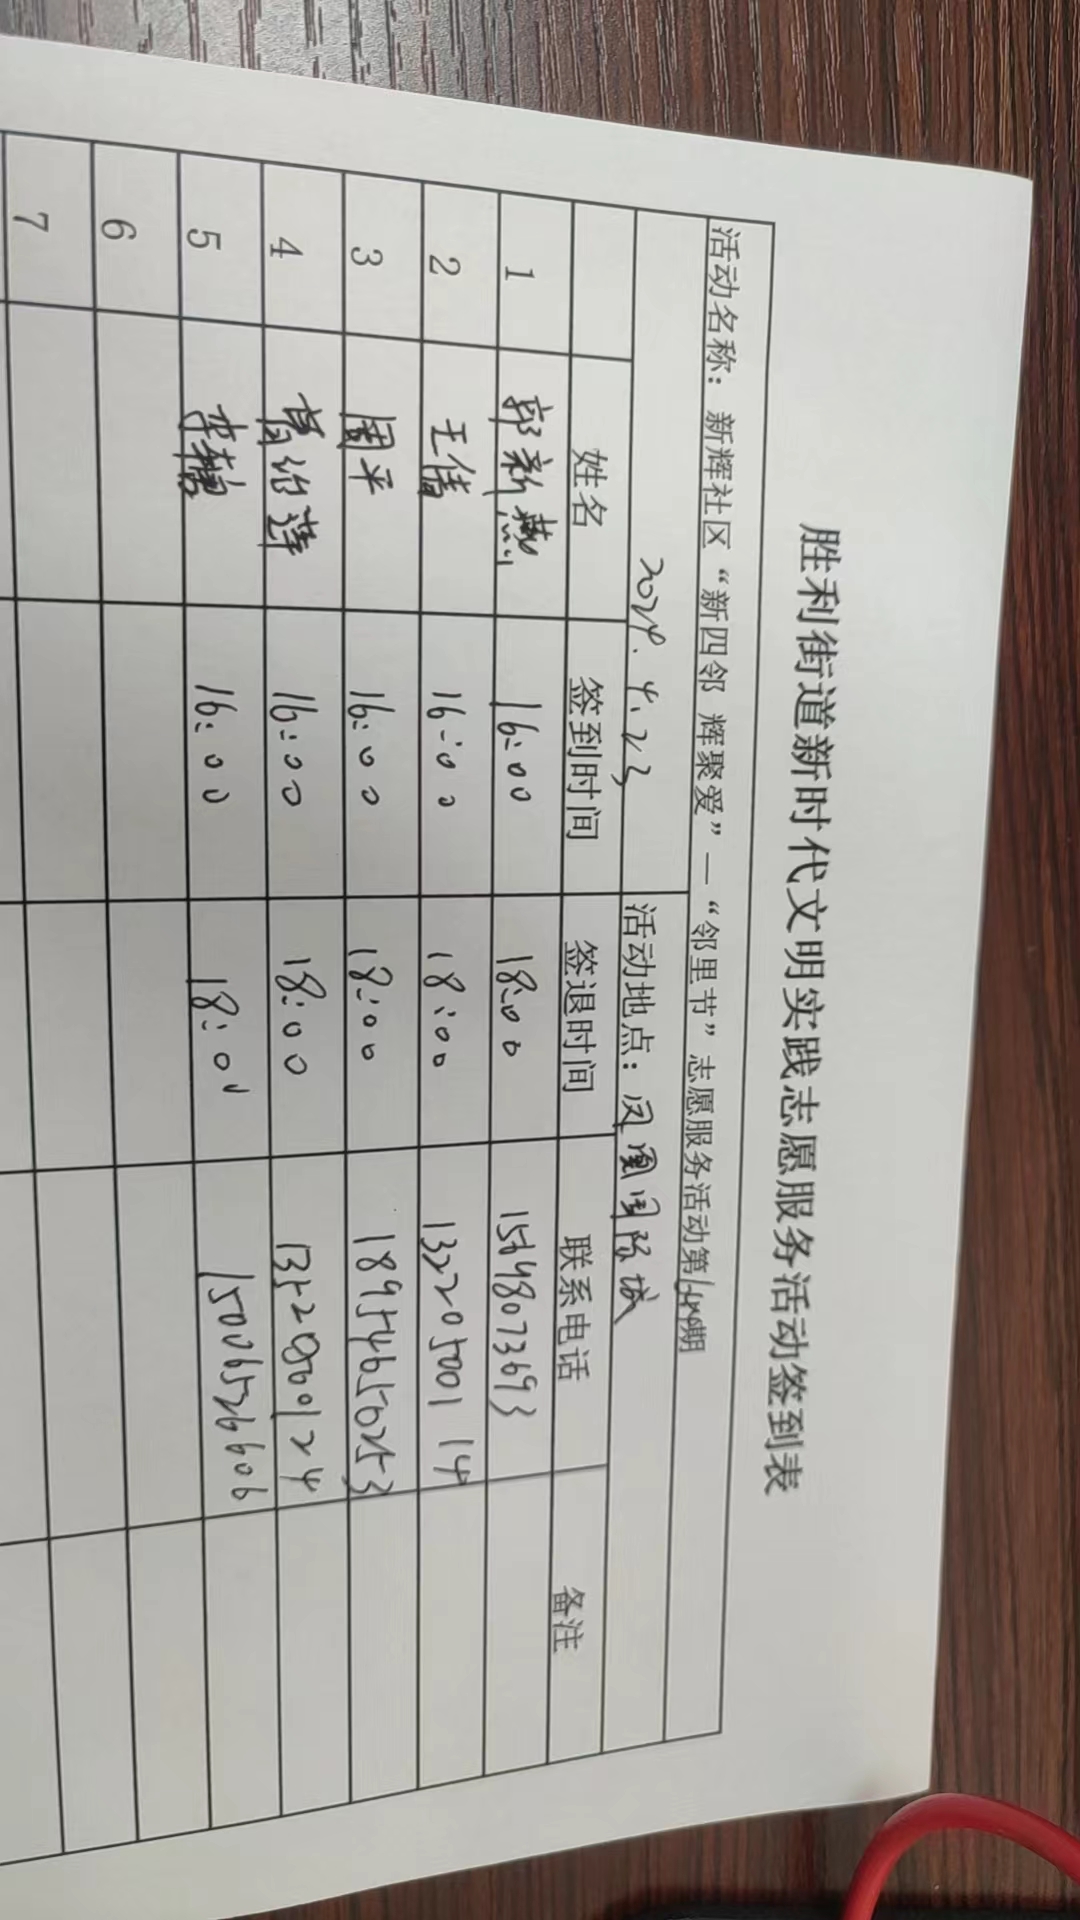 胜利街道新时代文明实践志愿服务活动签到表
活动名称：新辉社区“新四邻 辉聚爱”—“邻里节”志愿服务活动第 期
2024.4.23 活动地点：凤凰国际城
姓名 签到时间 签退时间 联系电话 备注
1 郭新燕 16:00 18:00 15648073693
2 王倩 16:00 18:00 13220500114
3 周平 16:00 18:00 18954650253
4 16:00 18:00
5 16:00 18:00 15006526606
6
7